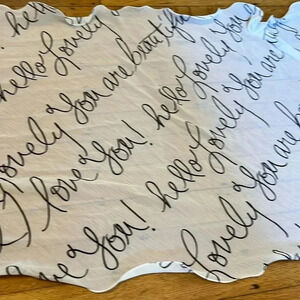 hello
hello Lovely
Lovely You are beautiful
love You! hello Lovely You
love You! hello Lovely You are
Lovely You are